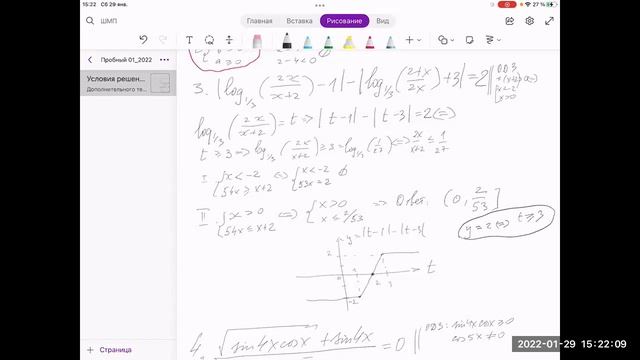 15:22 Сб 29 янв.
27 %
ШМП
Главная Вставка Рисование Вид
Пробный 01_2022
Условия решен...
Дополнительного те...
Страница
2-4<0
3. |log₁/₃(2x/(x+2)) - 1| - |log₁/₃((2+x)/2x) + 3| = 2 || ОДЗ
x<-2
x>0
log₁/₃(2x/(x+2)) = t ⇒ |t-1| - |t-3| = 2 ⇔
t ≥ 3 ⇒ log₁/₃(2x/(x+2)) ≥ 3 = log₁/₃(1/27) ⇔ 2x/(x+2) ≤ 1/27
I { x<-2 ⇔ { x<-2 ∅
54x ≥ x+2 53x=2
II { x>0 ⇔ { x>0 ⇒ Ответ: (0, 2/53]
54x ≤ x+2 x ≤ 2/53
y=2 ⇔ t ≥ 3
y=|t-1|-|t-3|
2
1 2 3
t
-2
4. √(sin4x cosx) + sin4x = 0 || ОДЗ: sin4x cosx ≥ 0
cos5x ≠ 0
2022-01-29 15:22:09